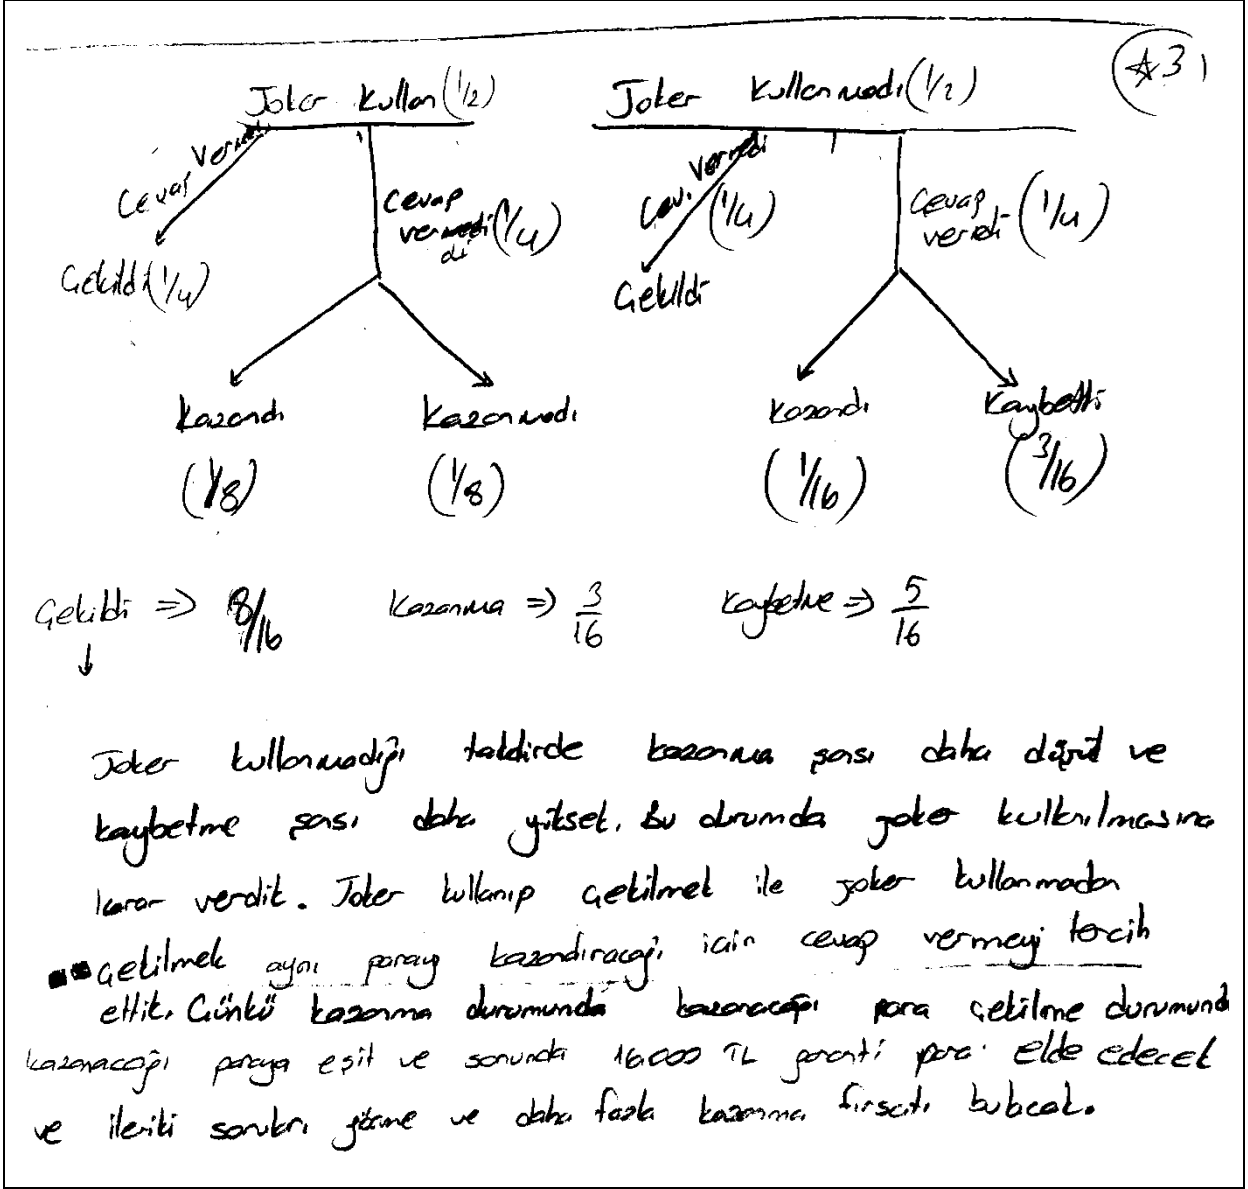 ☆3)
Joker kullan (1/2)
Joker kullanmadı (1/2)
Cevap vermedi
Cevap
vermedi (1/4)
di
Cev. vermedi
(1/4)
Cevap
verdi (1/4)
Çekildi (1/4)
Çekildi
Kazandı
Kazanmadı
Kazandı
Kaybetti
(1/8)
(1/8)
(1/16)
(3/16)
Çekildi => 8/16 Kazanma => 3/16 Kaybetme => 5/16
Joker kullanmadığı takdirde kazanma şansı daha düşük ve
kaybetme şansı daha yüksek. Bu durumda joker kullanılmasına
karar verdik. Joker kullanıp çekilmek ile joker kullanmadan
çekilmek aynı parayı kazandıracağı için cevap vermeyi tercih
ettik. Çünkü kazanma durumunda kazanacağı para çekilme durumund
kazanacağı paraya eşit ve sonunda 16000 TL garanti para elde edecek
ve ileriki soruları görme ve daha fazla kazanma fırsatı bulacak.